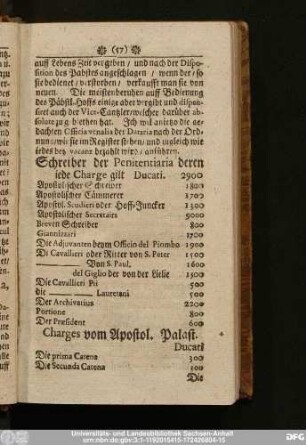 (57)
auff Lebens Zeit vergeben / und nach der Dispo-
sition des Pabstes angeschlagen / wenn der / so
sie bedienet / verstorben / verkaufft man sie von
neuen. Die meisten beruhen auff Bedienung
des Päbstl. Hoffs einige aber vergibt und dispen-
siret auch der Vice-Cantzler welcher darüber ab-
solute zu gebiethen hat. Ich wil anietzo die ge-
dachten Officia venalia der Dataria nach der Ord-
nung wie sie im Register stehen / und zugleich wie
iedes bey vacanz bezahlt wird / anführen.
Schreiber der Penitentiaria deren
iede Charge gilt Ducati. 2900
Apostolischer Schreiber 1800
Apostolischer Cämmerer 1700
Apostol. Scudieri oder Hoff-Juncker 1300
Apostolischer Secretairs 9000
Breven Schreiber 800
Giannizzari 1700
Die Adjovanten beym Officio del Piombo 1900
Di Cavallieri oder Ritter von S. Peter 1500
Von S. Paul, 1600
del Giglio der von der Lielie 1500
Die Cavallieri Pii 500
die Lauretani 500
Der Archivarius 2200
Portione 800
Der President 600
Charges vom Apostol. Palast.
Ducati
Die prima Catena 300
Die Secunda Catena 300
Die
Universitäts- und Landesbibliothek Sachsen-Anhalt
urn:nbn:de:gbv:3:1-1192015415-172426804-15
DFG